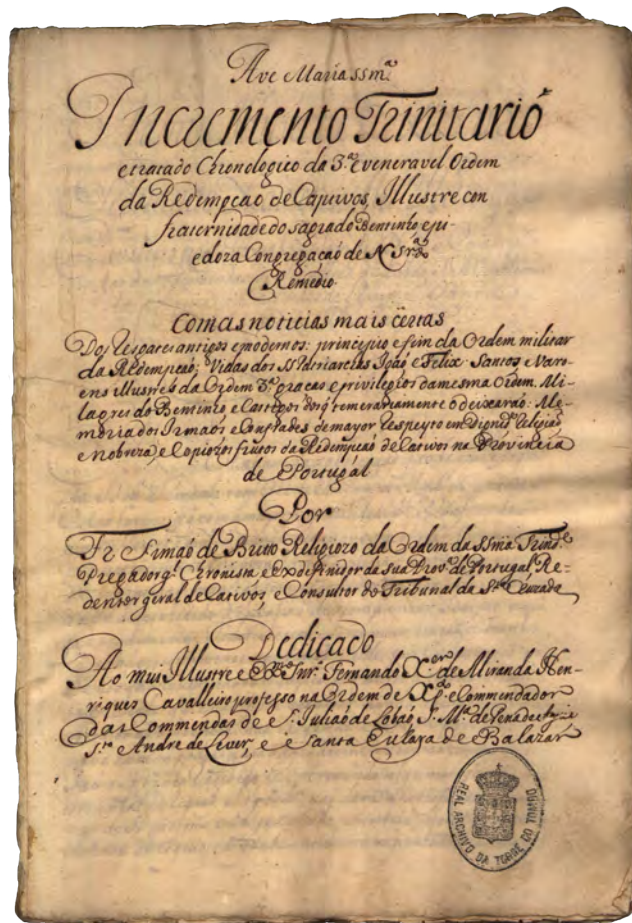 Ave Maria ssmᵃ
Incremento Trinitario
e tratado Chronologico da 3.ᵃ e veneravel Ordem
da Redempçaõ de Captivos, Illustre con
fraternidade do sagrado Bentinho e pi-
edoza Congregacaõ de N Srᵃ do
Remedio.
Com as noticias mais certas
Dos antigos e modernos: principio e fim da Ordem militar
da Redempçaõ; Vidas dos SS Patriarcias Joaõ e Felix. Santos e Var-
ens illustres da Ordem 3ᵃ gracas e privilegios da mesma Ordem. Mi-
lagres do Bentinho e Castigos dos q̃ temerariamente o deixaraõ: Me-
moria dos Irmaõs e Confrades de mayor Respeyto em Dignidᵉ Religiaõ,
e Nobreza, e Copiozos frutos da Redempçaõ de Cativos na Provincia
de Portugal
Por
Fr Simaõ de Britto Religiozo da Ordem da SSma Trindᵉ
Pregador gˡ Chronista e Exdifinidor da sua Provᵃ de Portugal, Re-
dentor geral de Cativos, e Consultor do Tribunal da Sᵗᵃ Cruzada
Dedicado
Ao mui Illustre e Snr. Fernando Xᵉʳ de Miranda Hen-
riques Cavalleiro professo na Ordem de Xᵒ e Commendador
das Commendas de S. Juliaõ de Lobaõ, S. Mᵃ de Pena
Sᵗᵒ Andre de Lever, e e Santa Eulaya de Balazar
REAL ARCHIVO DA TORRE DO TOMBO